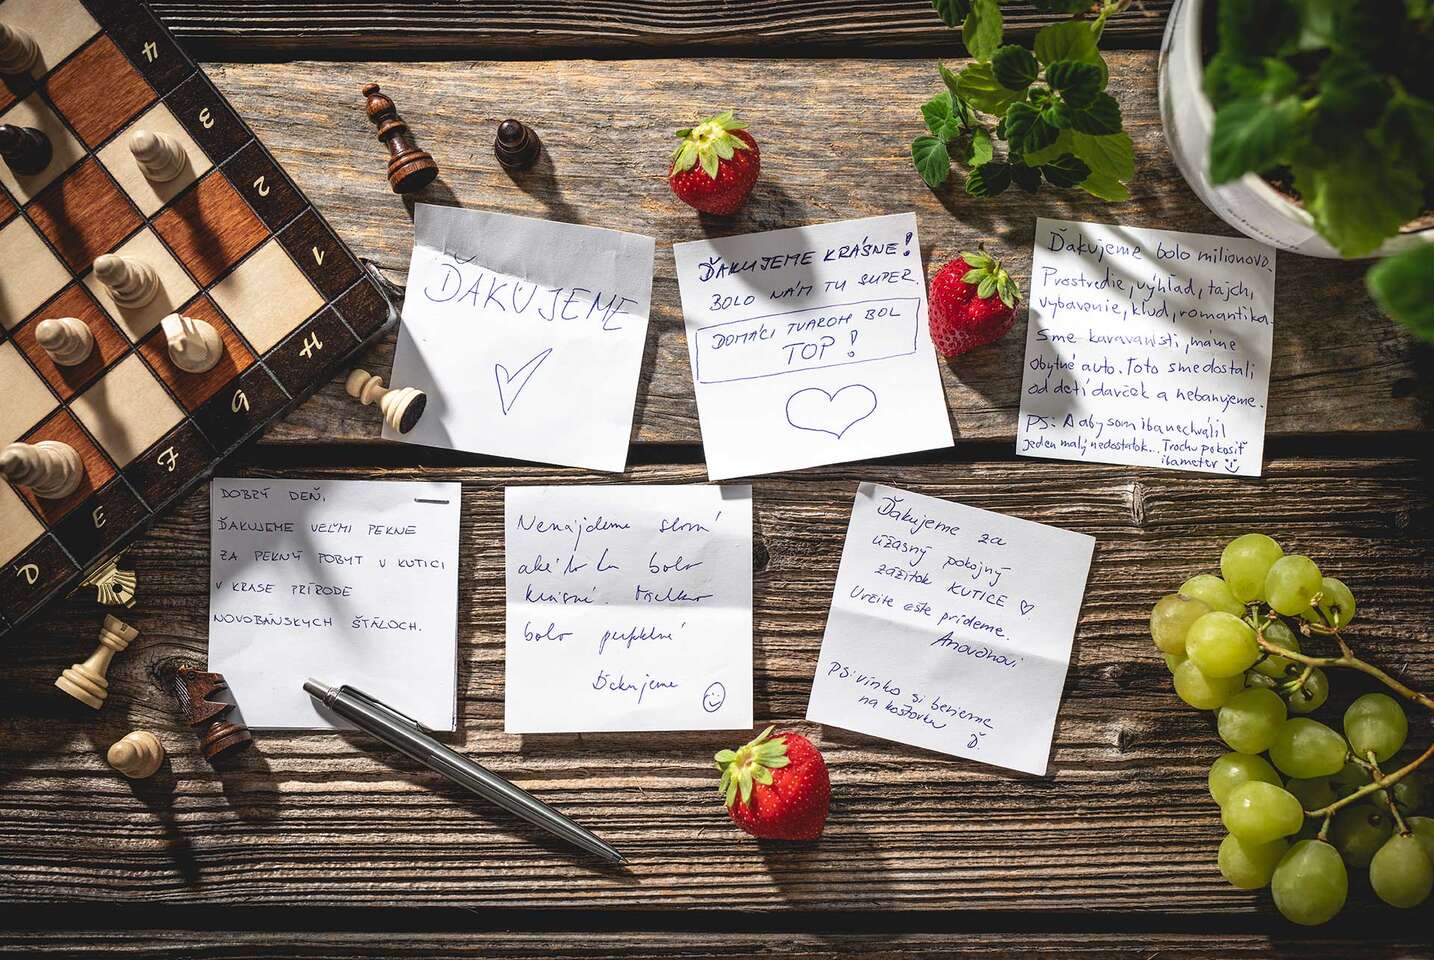 4
3
2
1
H
G
F
E
D
ĎAKUJEME
ĎAKUJEME KRÁSNE!
BOLO NÁM TU SUPER.
DOMÁCI TVAROH BOL
TOP!
Ďakujeme bolo milionovo.
Prostredie, výhľad, tajch,
vybavenie, kľud, romantika.
Sme karavanisti, máme
obytné auto. Toto sme dostali
od detí darček a nebanujeme.
PS: A aby som iba nechválil
jeden malý nedostatok... Trochu pokosiť
iba meter
DOBRÝ DEŇ,
ĎAKUJEME VEĽMI PEKNE
ZA PEKNÝ POBYT V KUTICI
V KRASE PRÍRODE
NOVOBÁNSKYCH ŠTÁLOCH.
Nenajdeme slová
aké to tu bolo
krásné. Všetko
bolo perfektné
Ďekujeme
Ďakujeme za
úžasný pokojný
zážitok KUTICE
Určite ešte prídeme.
PS: vínko si berieme
na koštovku
Ď.